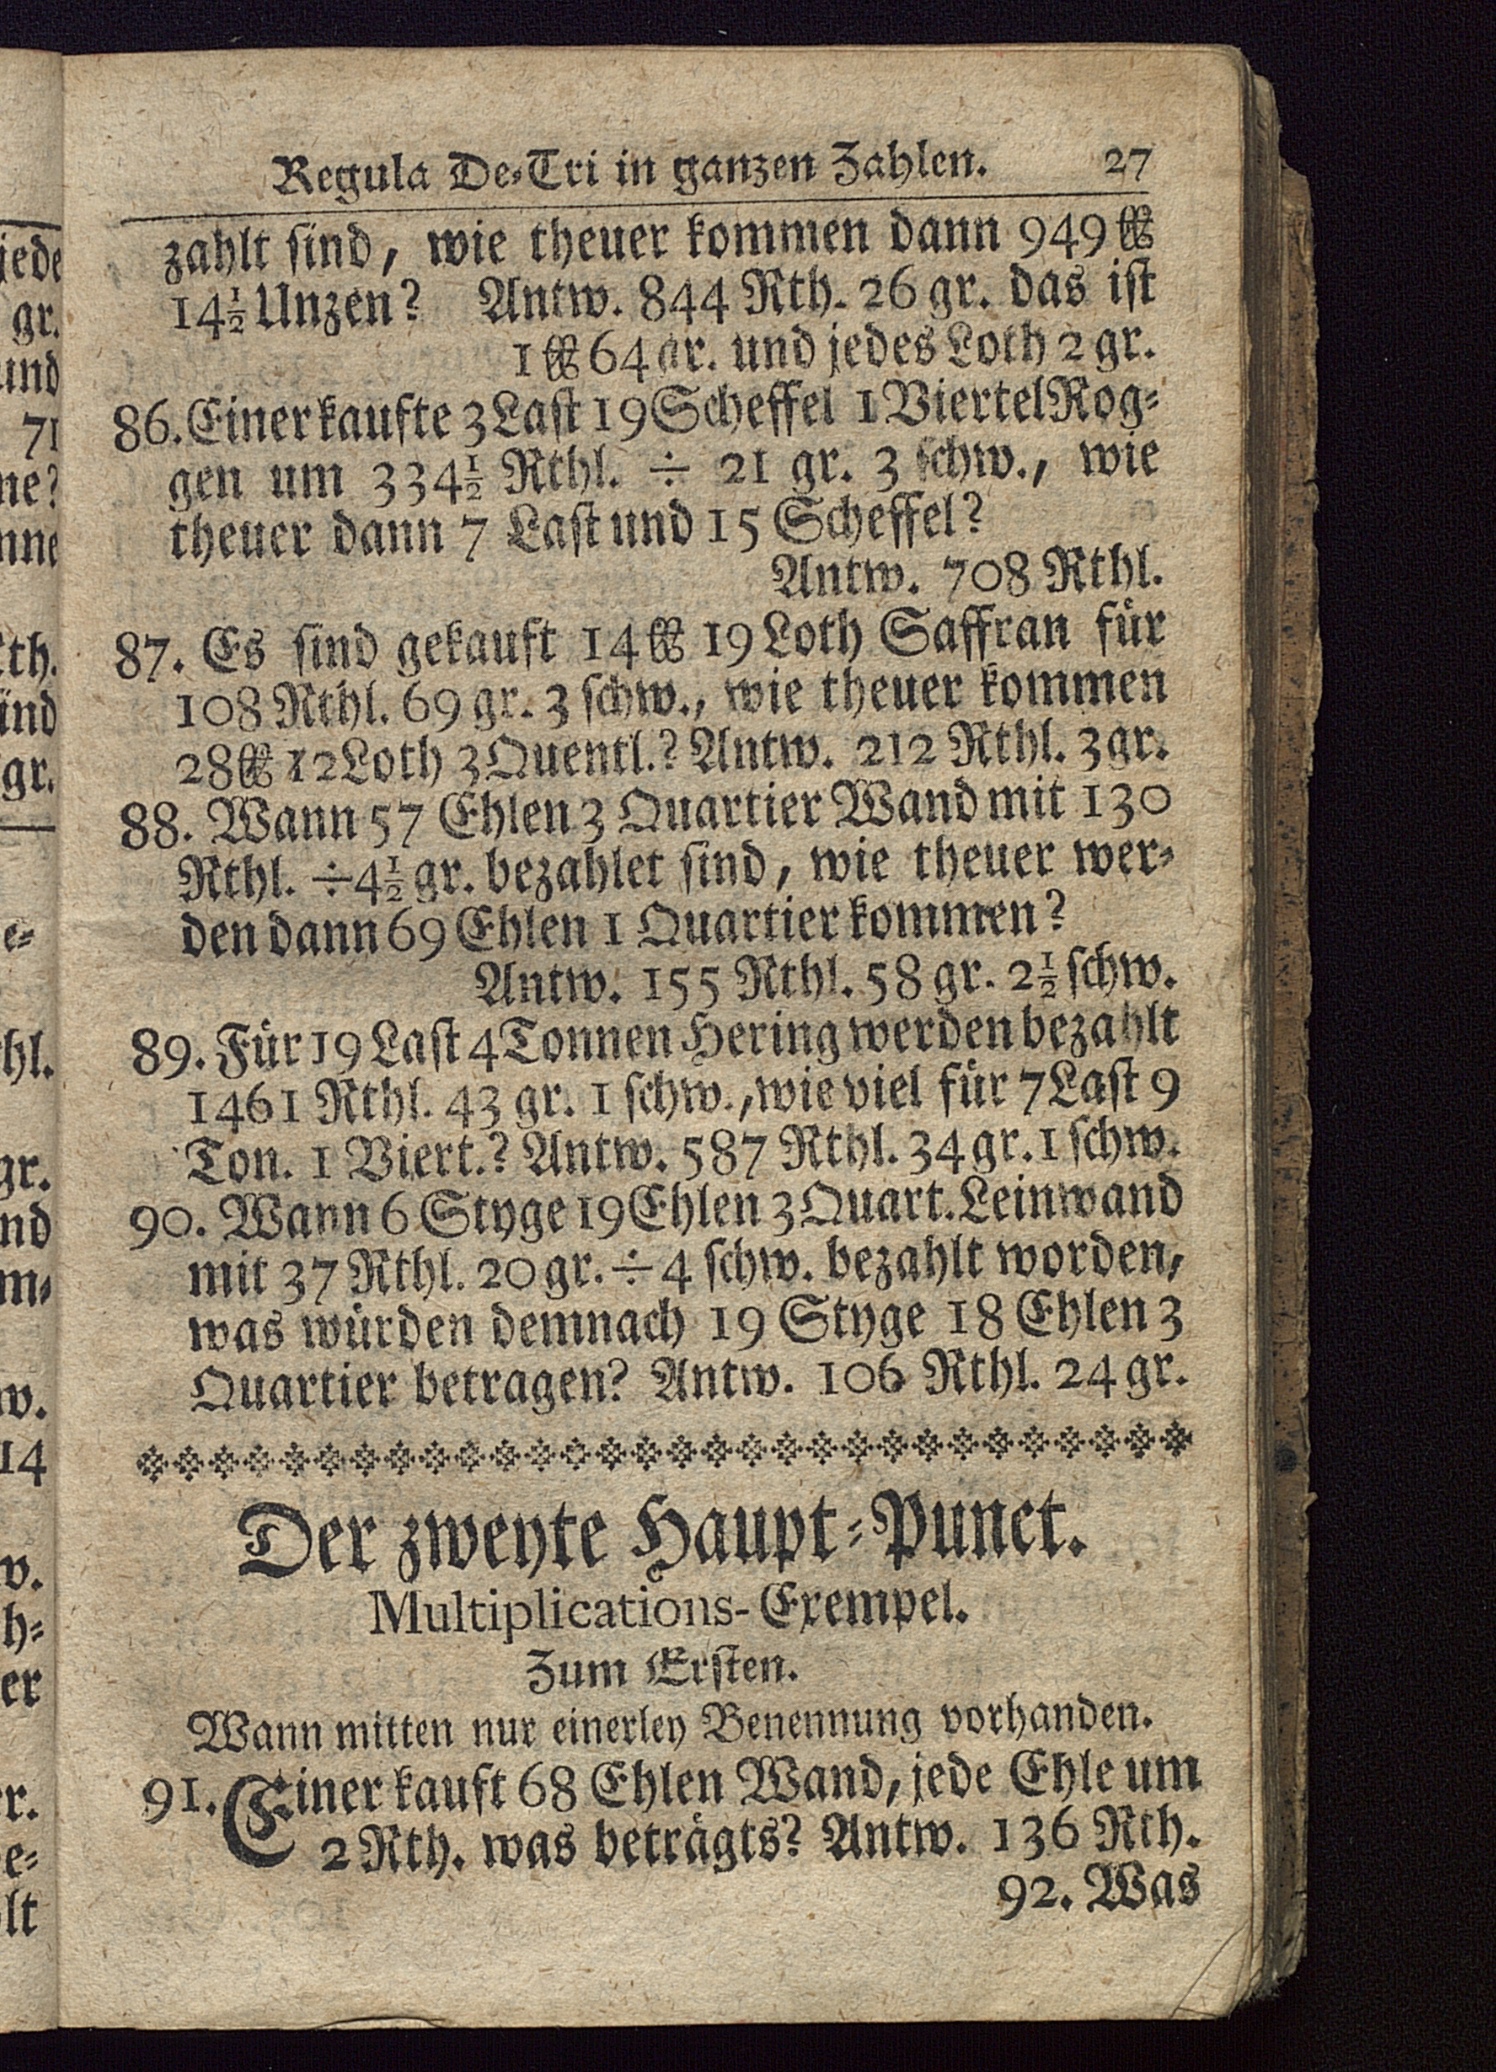 Regula De-Tri in ganzen Zahlen. 27
zahlt sind, wie theuer kommen dann 949 ℔
14½ Unzen? Antw. 844 Rth. 26 gr. das ist
1 ℔ 64 gr. und jedes Loth 2 gr.
86. Einer kaufte 3 Last 19 Scheffel 1 Viertel Rog-
gen um 334½ Rthl. ÷ 21 gr. 3 schw., wie
theuer dann 7 Last und 15 Scheffel?
Antw. 708 Rthl.
87. Es sind gekauft 14 ℔ 19 Loth Saffran für
108 Rthl. 69 gr. 3 schw., wie theuer kommen
28 ℔ 12 Loth 3 Quentl.? Antw. 212 Rthl. 3 gr.
88. Wann 57 Ehlen 3 Quartier Wand mit 130
Rthl. ÷ 4½ gr. bezahlet sind, wie theuer wer-
den dann 69 Ehlen 1 Quartier kommen?
Antw. 155 Rthl. 58 gr. 2½ schw.
89. Für 19 Last 4 Tonnen Hering werden bezahlt
1461 Rthl. 43 gr. 1 schw., wie viel für 7 Last 9
Ton. 1 Viert.? Antw. 587 Rthl. 34 gr. 1 schw.
90. Wann 6 Styge 19 Ehlen 3 Quart. Leinwand
mit 37 Rthl. 20 gr. ÷ 4 schw. bezahlt worden,
was würden demnach 19 Styge 18 Ehlen 3
Quartier betragen? Antw. 106 Rthl. 24 gr.
Der zweyte Haupt-Punct.
Multiplications-Exempel.
Zum Ersten.
Wann mitten nur einerley Benennung vorhanden.
91. Einer kauft 68 Ehlen Wand, jede Ehle um
2 Rth. was beträgts? Antw. 136 Rth.
92. Was